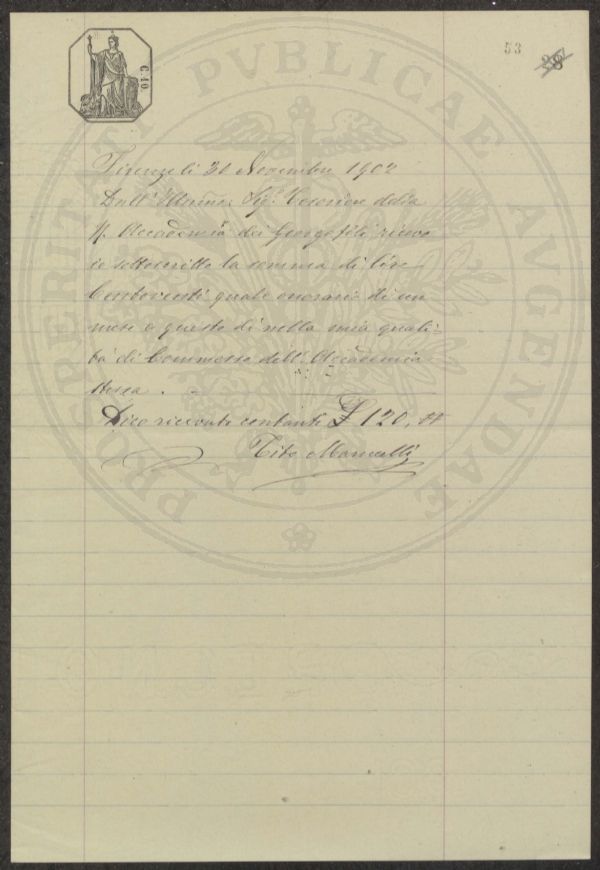 53
C. 10
PROSPERITATI PVBLICAE AVGENDAE
Firenze li 30 Novembre 1902
Dall' Sig. della
R. Accademia dei Georgofili ricevo
io sottoscritto la somma di Lire
Centoventi quale onorario di un
mese a questo dì nella mia quali-
tà di Commesso dell' Accademia
stessa.
Dico ricevute contanti £ 120,
Tito